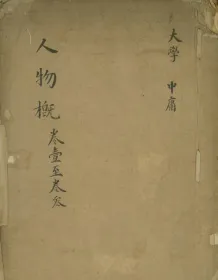 大学 中庸
人物概 卷壹至卷叁